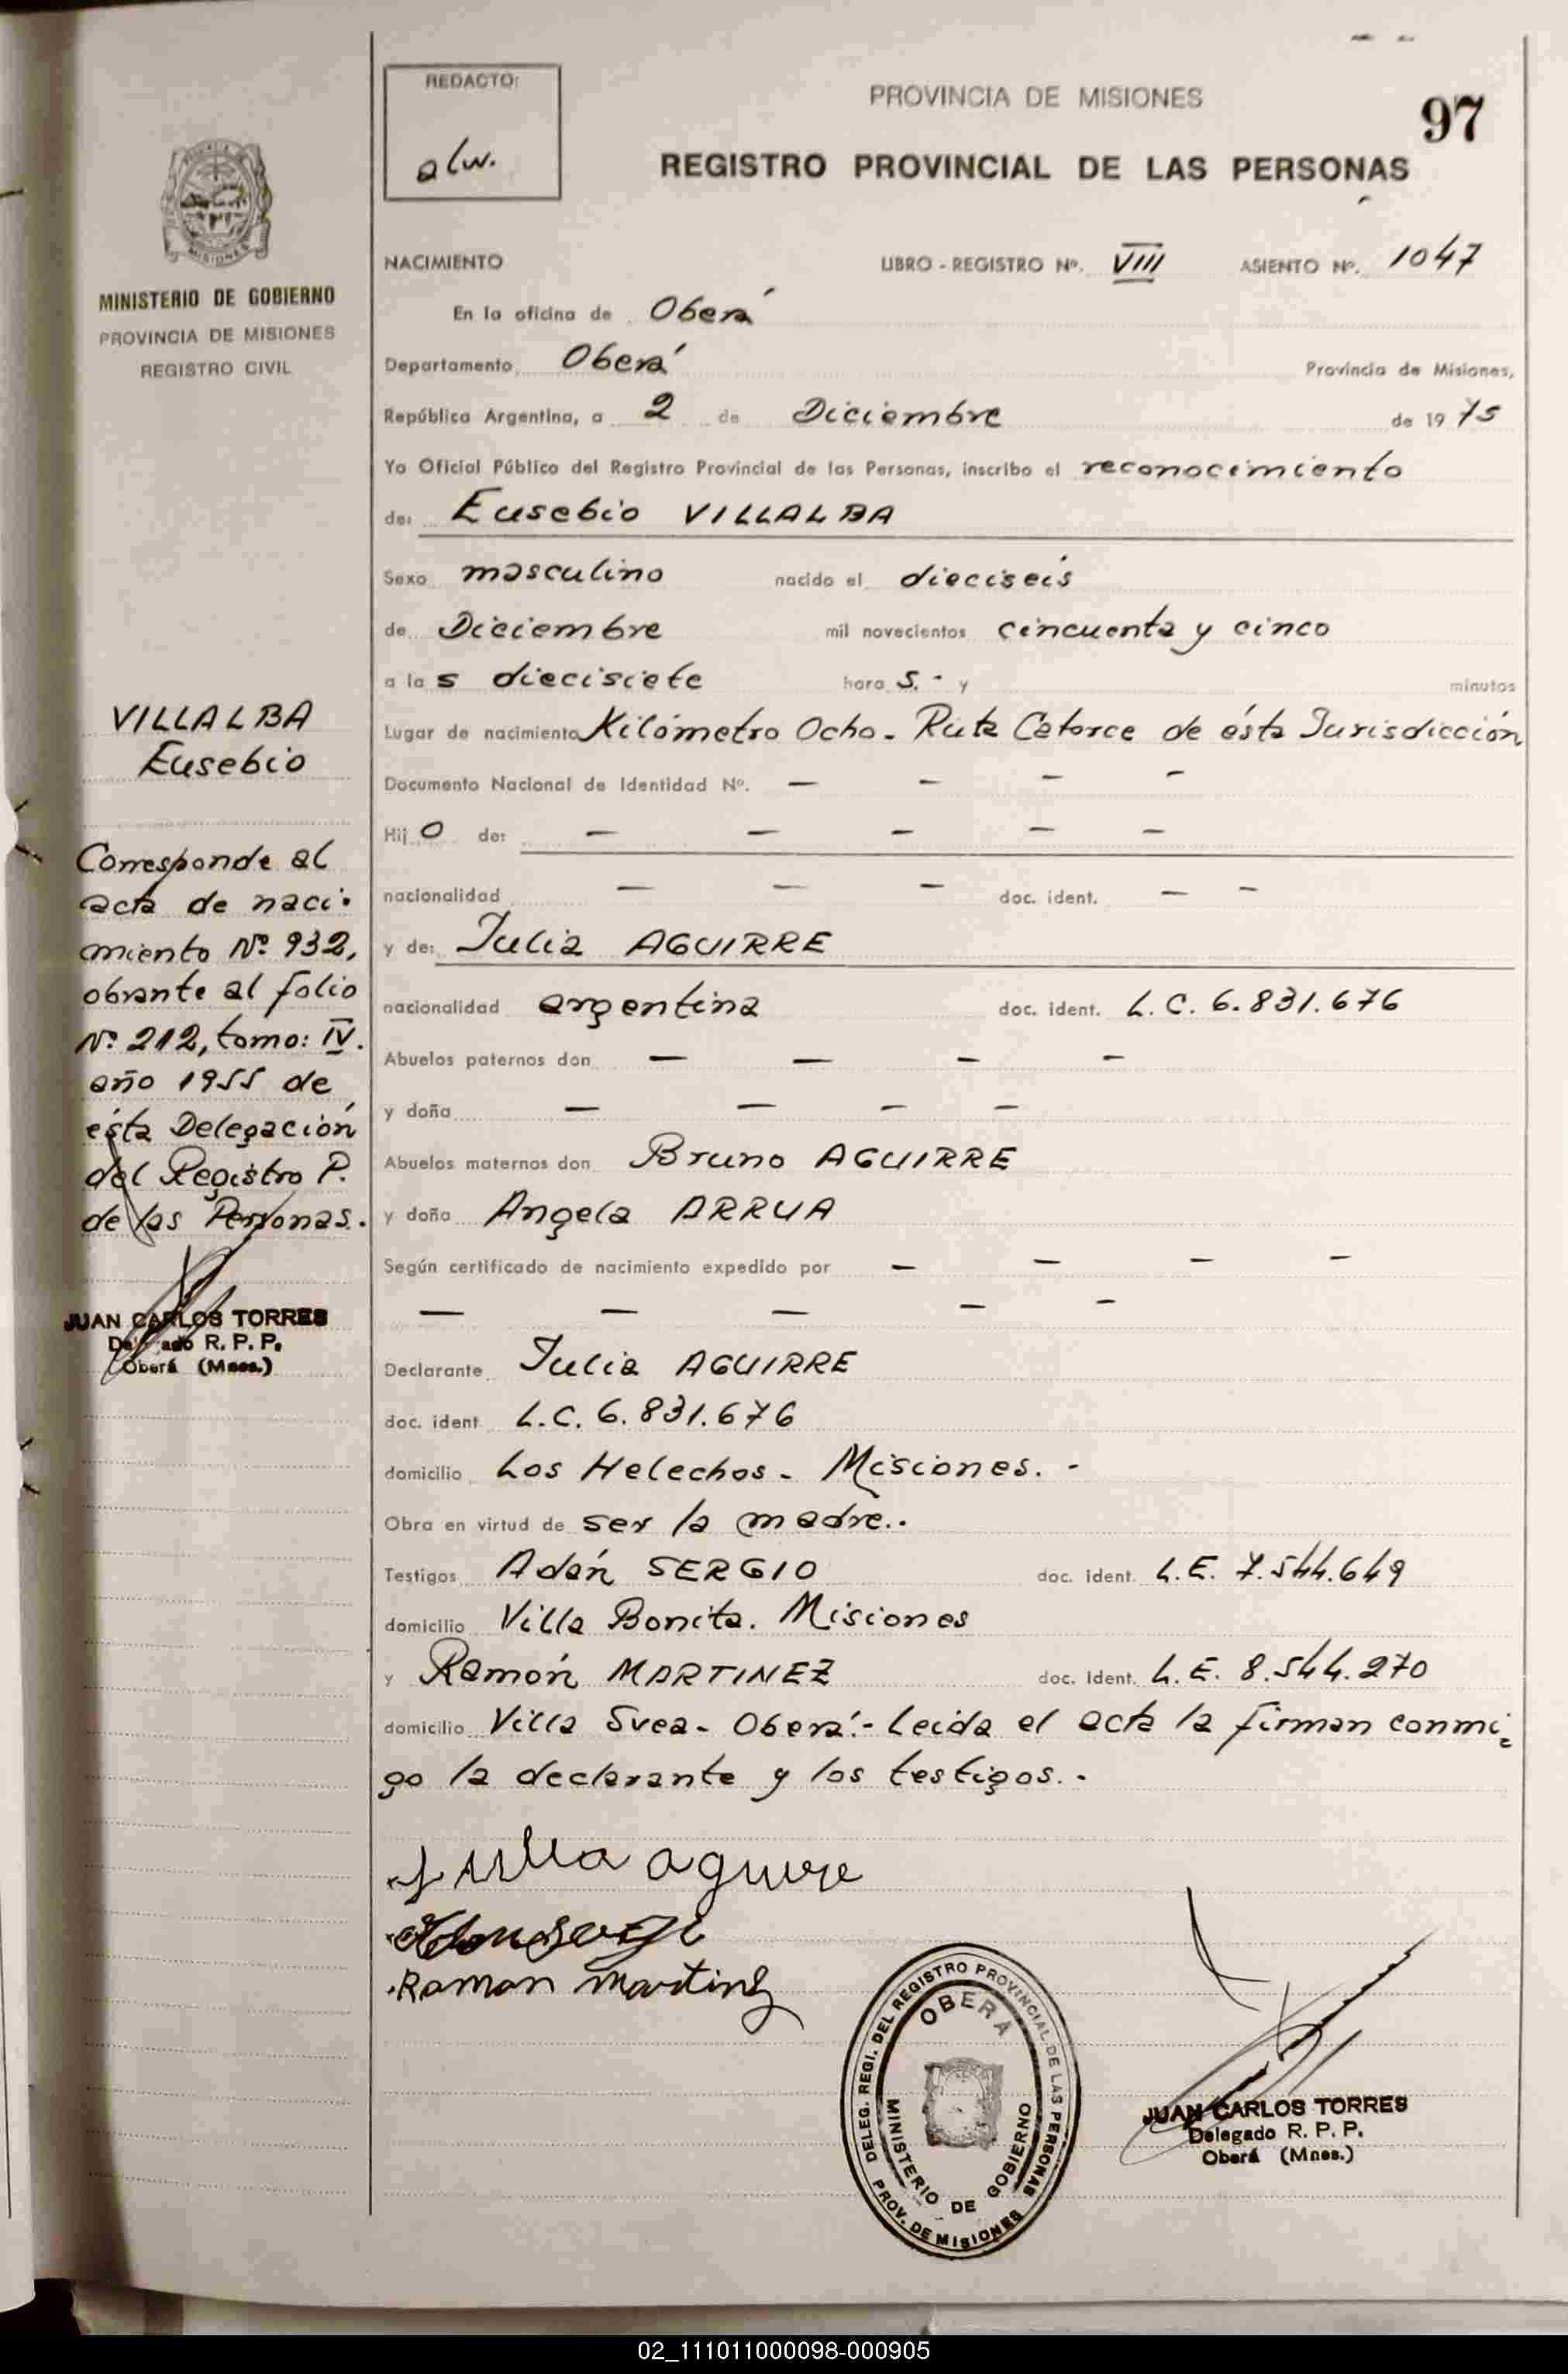 REDACTO:
alw.
PROVINCIA DE MISIONES
97
REGISTRO PROVINCIAL DE LAS PERSONAS
MISIONES
MINISTERIO DE GOBIERNO
PROVINCIA DE MISIONES
REGISTRO CIVIL
NACIMIENTO LIBRO - REGISTRO Nº. VIII ASIENTO Nº. 1047
En la oficina de Oberá
Departamento Oberá Provincia de Misiones,
República Argentina, a 2 de Diciembre de 19 75
Yo Oficial Público del Registro Provincial de las Personas, inscribo el reconocimiento
de: Eusebio VILLALBA
Sexo masculino nacido el dieciseis
de Diciembre mil novecientos cincuenta y cinco
a las diecisiete hora s. - y minutos
Lugar de nacimiento Kilómetro Ocho - Ruta Catorce de ésta Jurisdicción
Documento Nacional de Identidad Nº. — — — —
Hijo de: — — — — —
nacionalidad — — — doc. ident. — —
y de: Julia AGUIRRE
nacionalidad argentina doc. ident. L.C. 6.831.676
Abuelos paternos don — — — —
y doña — — — —
Abuelos maternos don Bruno AGUIRRE
y doña Angela ARRUA
Según certificado de nacimiento expedido por — — — —
— — — — —
Declarante Julia AGUIRRE
doc. ident. L.C. 6.831.676
domicilio Los Helechos - Misiones. -
Obra en virtud de ser la madre. .
Testigos Adán SERGIO doc. ident. L.E. 7.544.649
domicilio Villa Bonita. Misiones
y Ramón MARTINEZ doc. ident. L.E. 8.544.270
domicilio Villa Svea - Oberá. - Leida el acta la firman conmi-
go la declarante y los testigos. -
VILLALBA
Eusebio
Corresponde al
acta de naci-
miento Nº 932,
obrante al folio
Nº 212, tomo: IV.
año 1955 de
ésta Delegación
del Registro P.
de las Personas.
JUAN CARLOS TORRES
Delegado R. P. P.
Oberá (Mnes.)
Julia aguirre
Ramon Martinez
DELEG. REGI. DEL REGISTRO PROVINCIAL DE LAS PERSONAS
OBERA
MINISTERIO DE GOBIERNO
PROV. DE MISIONES
JUAN CARLOS TORRES
Delegado R. P. P.
Oberá (Mnes.)
02_111011000098-000905